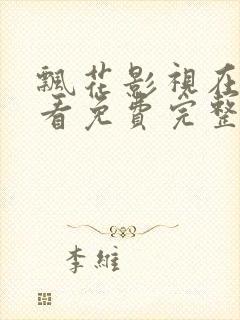 飄花影視在
看免費完整
李維